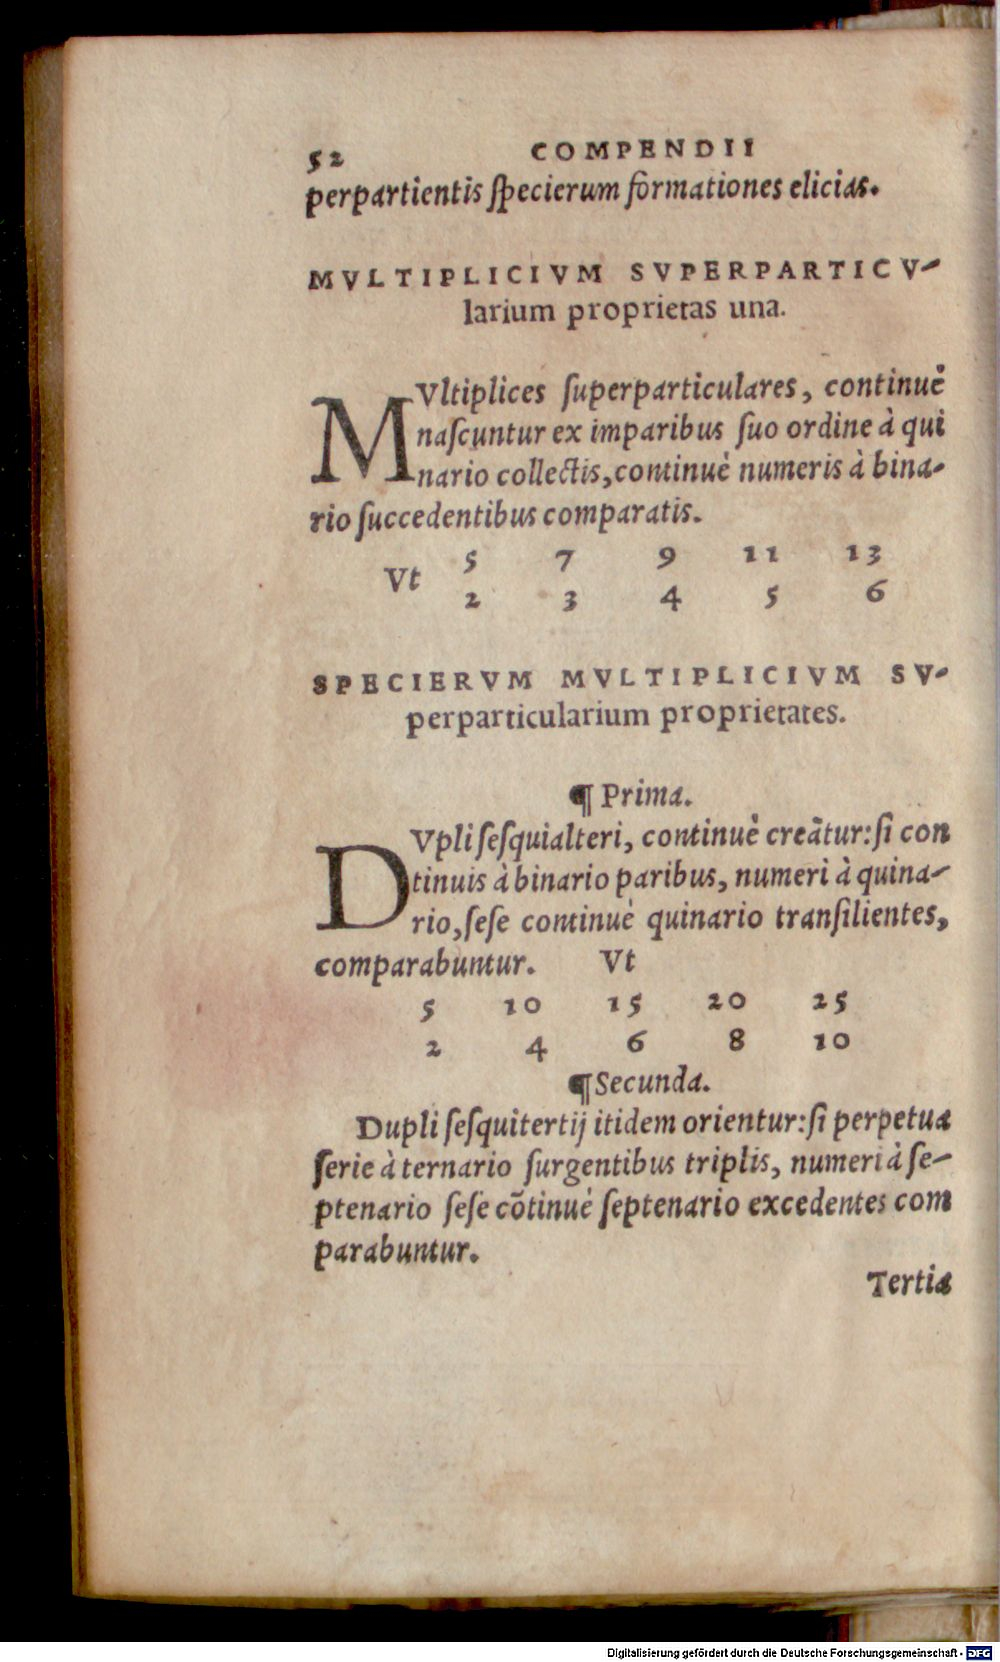 52 COMPENDII
perpartientis ſpecierum formationes elicias.
MVLTIPLICIVM SVPERPARTICV-
larium proprietas una.
MVltiplices ſuperparticulares, continuè
naſcuntur ex imparibus ſuo ordine à qui
nario collectis, continuè numeris à bina-
rio ſuccedentibus comparatis.
5 7 9 11 13
Vt
2 3 4 5 6
SPECIERVM MVLTIPLICIVM SV-
perparticularium proprietates.
¶ Prima.
DVpli ſeſquialteri, continuè creãtur: ſi con
tinuis à binario paribus, numeri à quina-
rio, ſeſe continuè quinario tranſilientes,
comparabuntur. Vt
5 10 15 20 25
2 4 6 8 10
¶ Secunda.
Dupli ſeſquitertij itidem orientur: ſi perpetua
ſerie à ternario ſurgentibus triplis, numeri à ſe-
ptenario ſeſe cõtinuè ſeptenario excedentes com
parabuntur.
Tertia
Digitalisierung gefördert durch die Deutsche Forschungsgemeinschaft - DFG